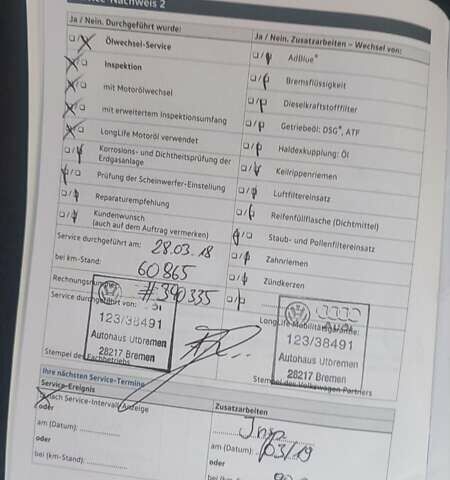 Nachweis 2
Ja / Nein. Durchgeführt wurde:
Ölwechsel-Service
Inspektion
mit Motorölwechsel
mit erweitertem Inspektionsumfang
LongLife Motoröl verwendet
Korrosions- und Dichtheitsprüfung der
Erdgasanlage
Prüfung der Scheinwerfer-Einstellung
Reparaturempfehlung
Kundenwunsch
(auch auf dem Auftrag vermerken)
Service durchgeführt am: 28.03.18
bei km-Stand: 60865
Rechnungsnu #390335
Service durchgeführt von:
123/38491
Autohaus Utbremen
28217 Bremen
Stempel des Fachbetriebs
Ja / Nein. Zusatzarbeiten – Wechsel von:
AdBlue®
Bremsflüssigkeit
Dieselkraftstofffilter
Getriebeöl: DSG®, ATF
Haldexkupplung: Öl
Keilrippenriemen
Luftfiltereinsatz
Reifenfüllflasche (Dichtmittel)
Staub- und Pollenfiltereinsatz
Zahnriemen
Zündkerzen
LongLife Mobilitätsgarantie:
Audi
123/38491
Autohaus Utbremen
28217 Bremen
Stempel des Volkswagen Partners
Ihre nächsten Service-Termine
Service-Ereignis
nach Service-Intervall-Anzeige
oder
am (Datum):
oder
bei (km-Stand):
Zusatzarbeiten
Insp
am (Datum): 03/19
oder
bei (km-Stand):